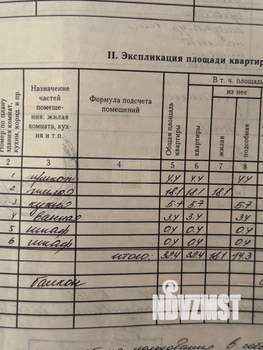 II. Экспликация площади квартир
Номер по плану здания комнат, кухни, корид. и пр.
Назначение частей помеще- ния: жилая комната, кух- ня и т.п.
Формула подсчета помещений
Общая площадь квартиры
В т. ч. площадь
квартиры
из нее
жилая
подсобная
2 3 4 5 6 7 8
1 4.4 4.4 4.4
2 жилая 18.1 18.1 18.1
3 кухня 5.7 5.7 5.7
4 ванная 3.4 3.4 3.4
5 шкаф 0.4 0.4 0.4
6 шкаф 0.4 0.4 0.4
итого: 32.4 32.4 18.1 14.3
балкон
NDVZHST